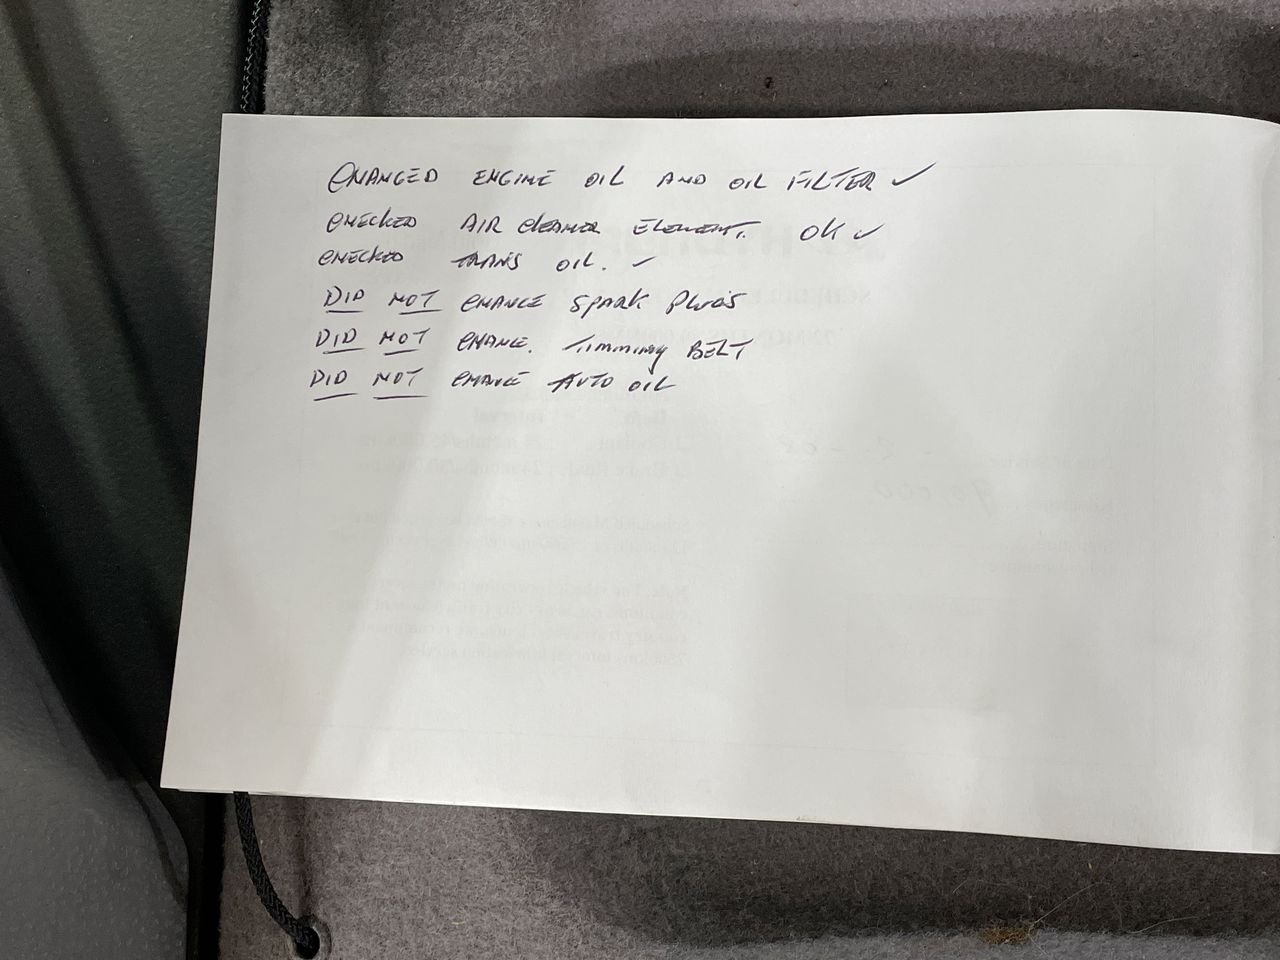 CHANGED ENGINE OIL AND OIL FILTER ✓
CHECKED AIR CLEANER ELEMENT. OK ✓
CHECKED TRANS OIL. ✓
DID NOT CHANGE SPARK PLUGS
DID NOT CHANGE. TIMMING BELT
DID NOT CHANGE AUTO OIL